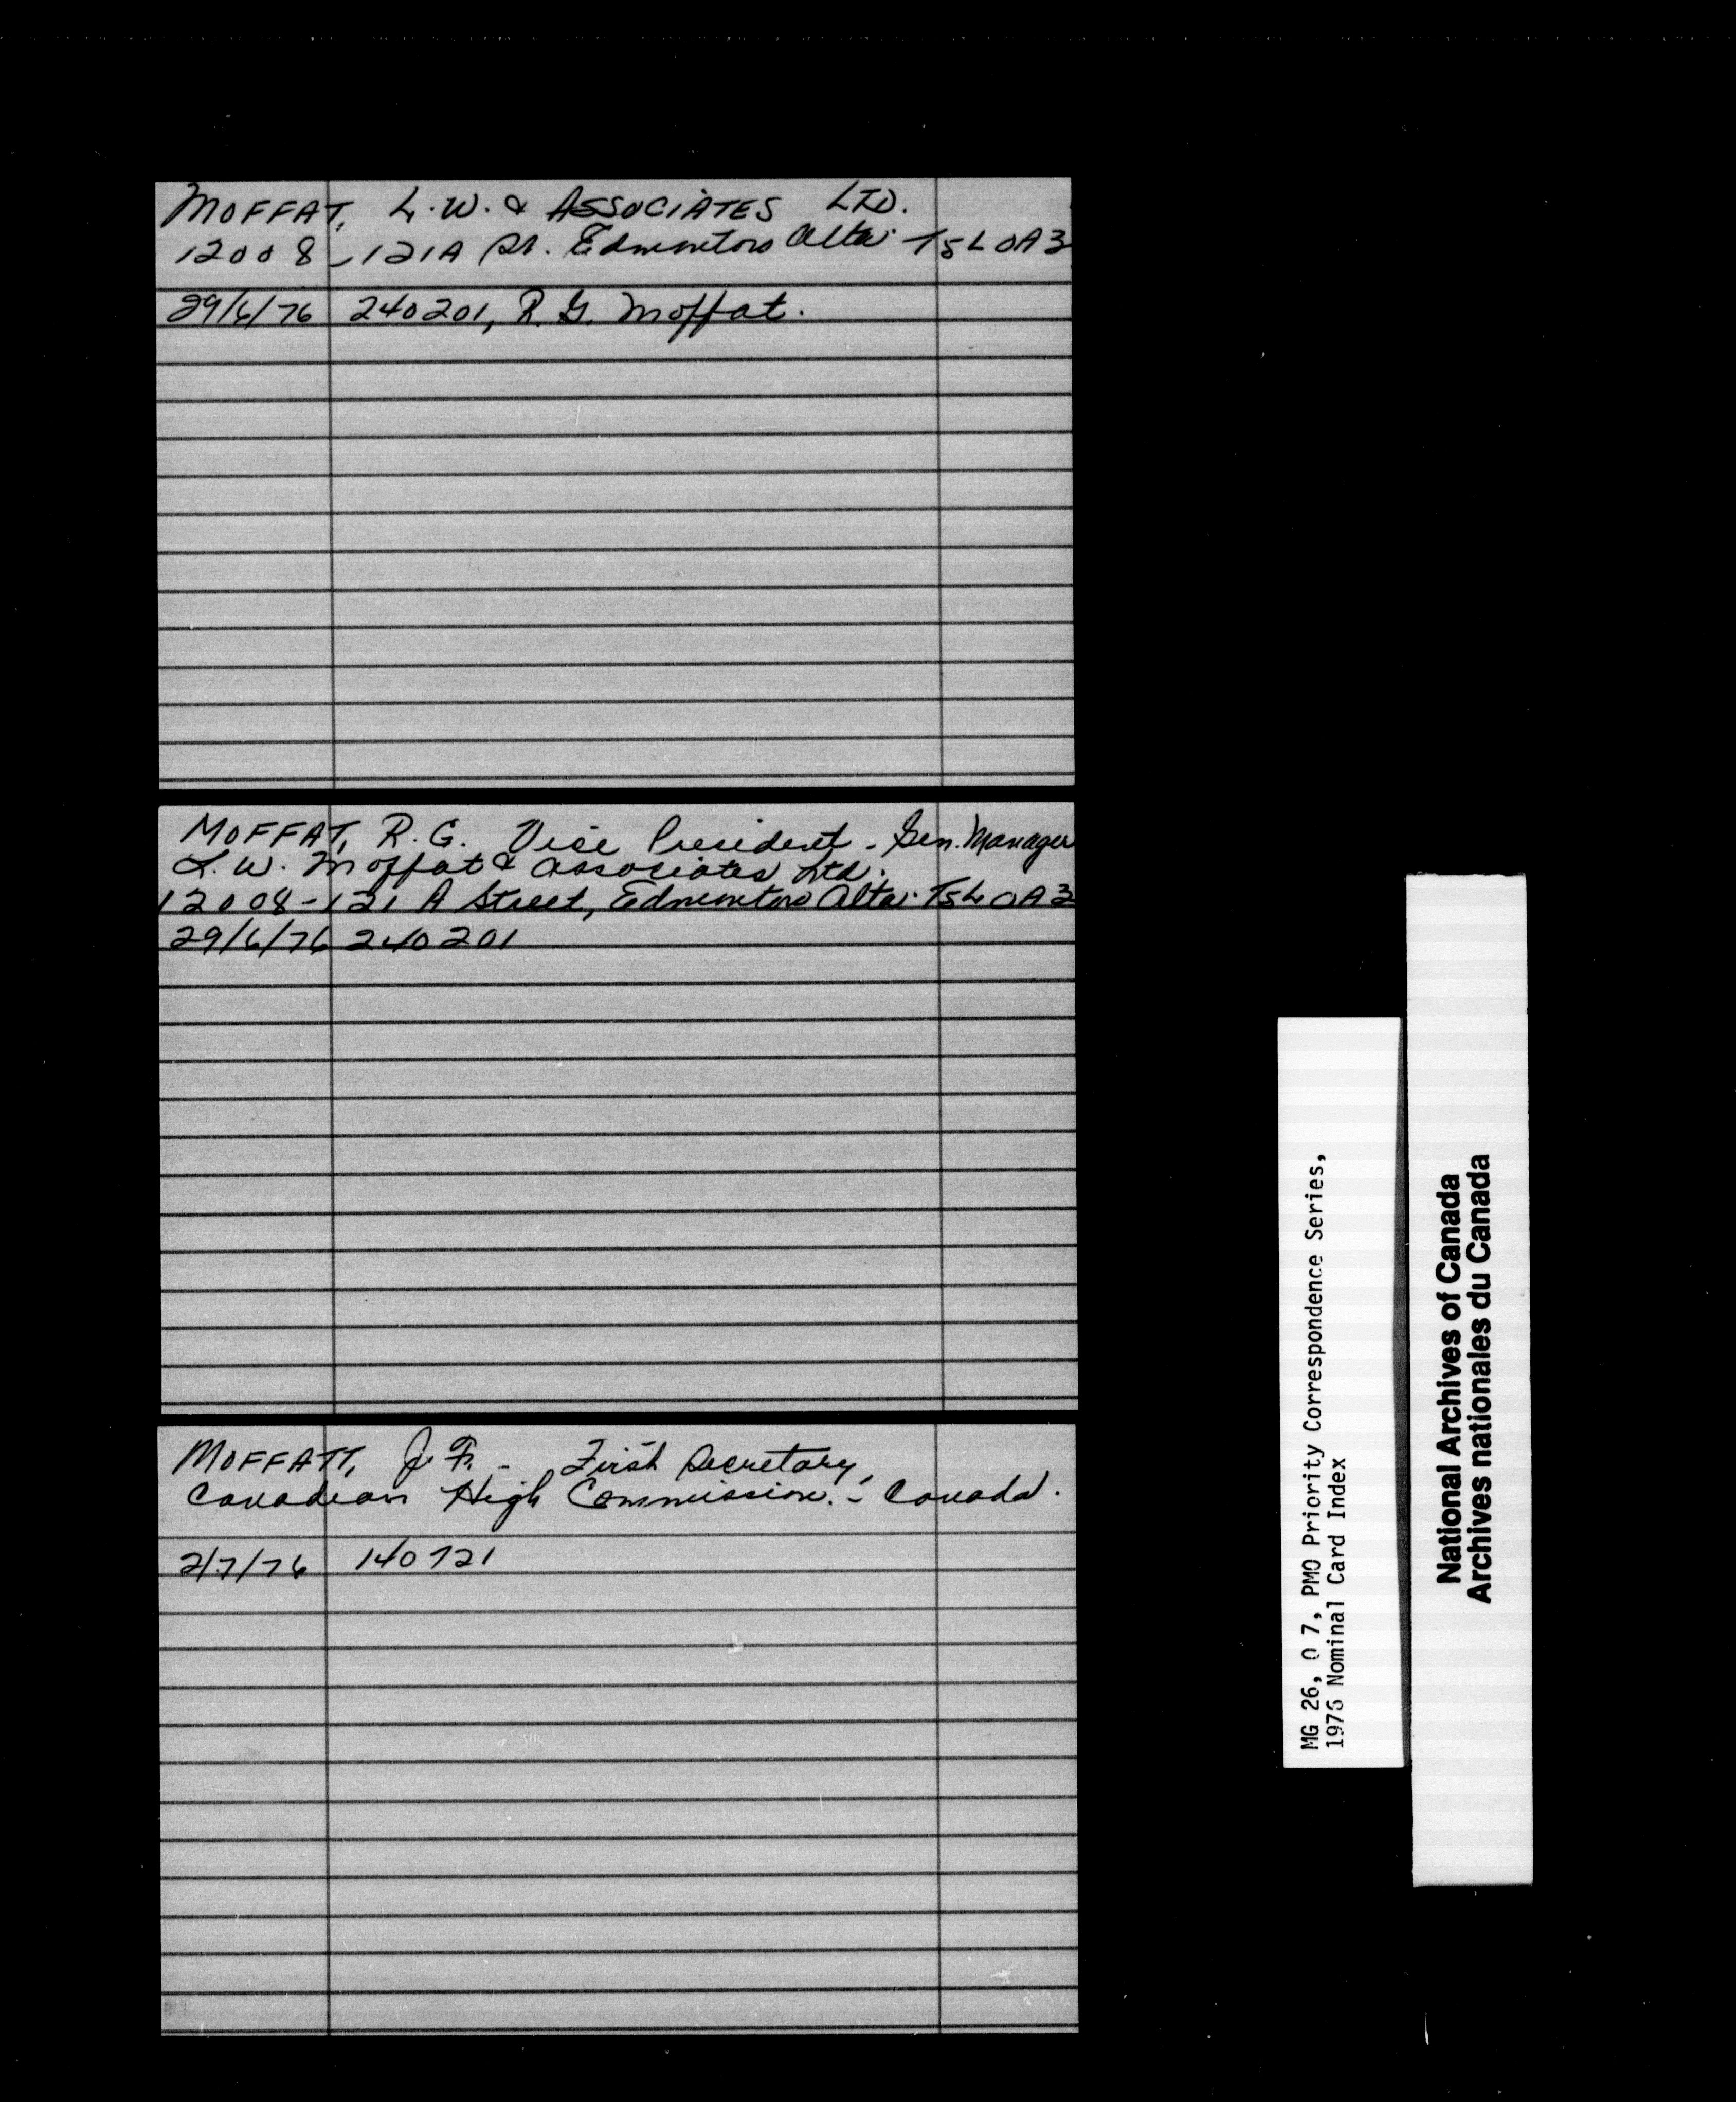 MOFFAT, L.W. & ASSOCIATES LTD.
12008-121A St. Edmonton Alta. T5L 0A3
29/6/76 240201, R.G. Moffat.
MOFFAT, R.G. Vice President - Gen. Manager
L.W. Moffat & Associates Ltd.
12008-121 A Street, Edmonton Alta. T5L 0A3
29/6/76 240201
MOFFATT, J.F. - First Secretary,
Canadian High Commission. - Canada.
2/7/76 140721
MG 26, O 7, PMO Priority Correspondence Series,
1976 Nominal Card Index
National Archives of Canada
Archives nationales du Canada